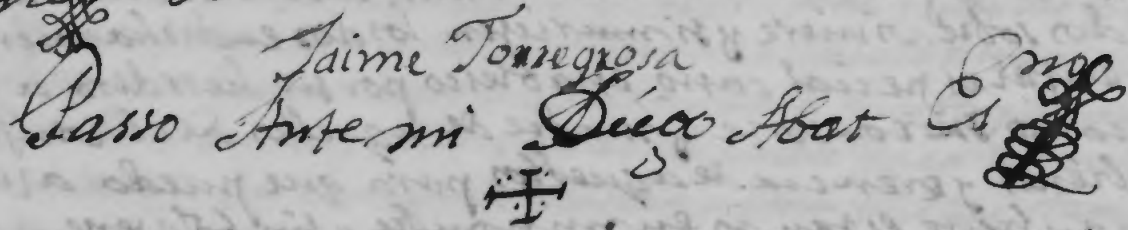 Jaime Torregrosa
Passo Ante mi Diego Abat Es.no